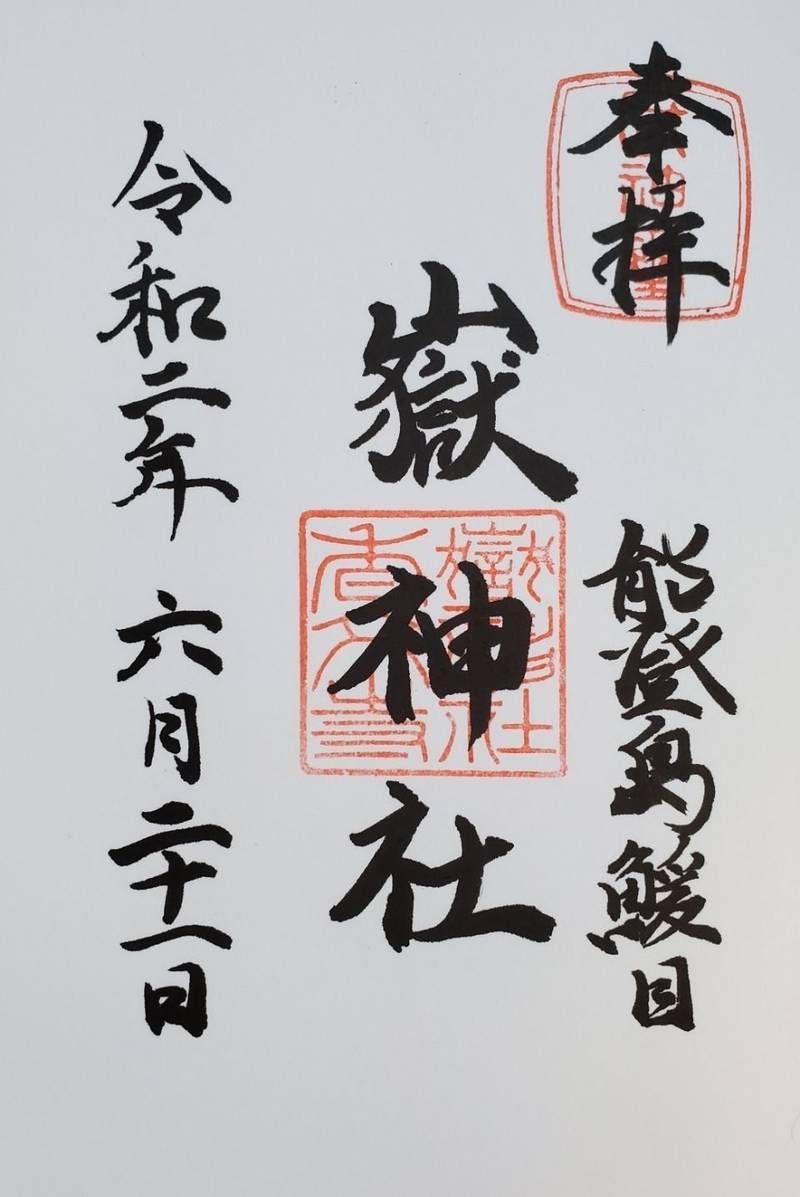 奉拝
能登島鰀目
嶽神社
令和二年 六月二十一日